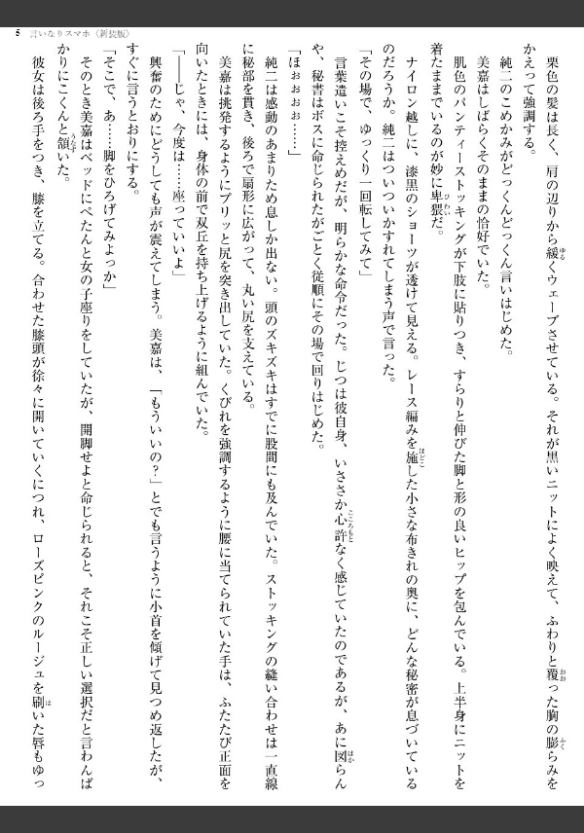 5 言いなりスマホ〈新装版〉
栗色の髪は長く、肩の辺りから緩くウェーブさせている。それが黒いニットによく映えて、ふわりと覆った胸の膨らみを
かえって強調する。
純二のこめかみがどっくんどっくん言いはじめた。
美嘉はしばらくそのままの恰好でいた。
肌色のパンティーストッキングが下肢に貼りつき、すらりと伸びた脚と形の良いヒップを包んでいる。上半身にニットを
着たままでいるのが妙に卑猥だ。
ナイロン越しに、漆黒のショーツが透けて見える。レース編みを施した小さな布きれの奥に、どんな秘密が息づいている
のだろうか。純二はついついかすれてしまう声で言った。
「その場で、ゆっくり一回転してみて」
言葉遣いこそ控えめだが、明らかな命令だった。じつは彼自身、いささか心許なく感じていたのであるが、あに図らん
や、秘書はボスに命じられたがごとく従順にその場で回りはじめた。
「ほぉぉぉぉ……」
純二は感動のあまりため息しか出ない。頭のズキズキはすでに股間にも及んでいた。ストッキングの縫い合わせは一直線
に秘部を貫き、後ろで扇形に広がって、丸い尻を支えている。
美嘉は挑発するようにプリッと尻を突き出していた。くびれを強調するように腰に当てられていた手は、ふたたび正面を
向いたときには、身体の前で双丘を持ち上げるように組んでいた。
「――じゃ、今度は……座っていいよ」
興奮のためにどうしても声が震えてしまう。美嘉は、「もういいの？」とでも言うように小首を傾げて見つめ返したが、
すぐに言うとおりにする。
「そこで、あ……脚をひろげてみよっか」
そのとき美嘉はベッドにぺたんと女の子座りをしていたが、開脚せよと命じられると、それこそ正しい選択だと言わんば
かりにこくんと頷いた。
彼女は後ろ手をつき、膝を立てる。合わせた膝頭が徐々に開いていくにつれ、ローズピンクのルージュを刷いた唇もゆっ